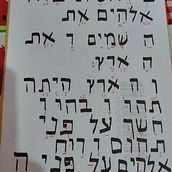 אלהים את
ה שמים ו את
ה ארץ
ו ה ארץ היתה
תהו ו בהו ו
חשך על פני
תהום ו רוח
אלהים על פני ה